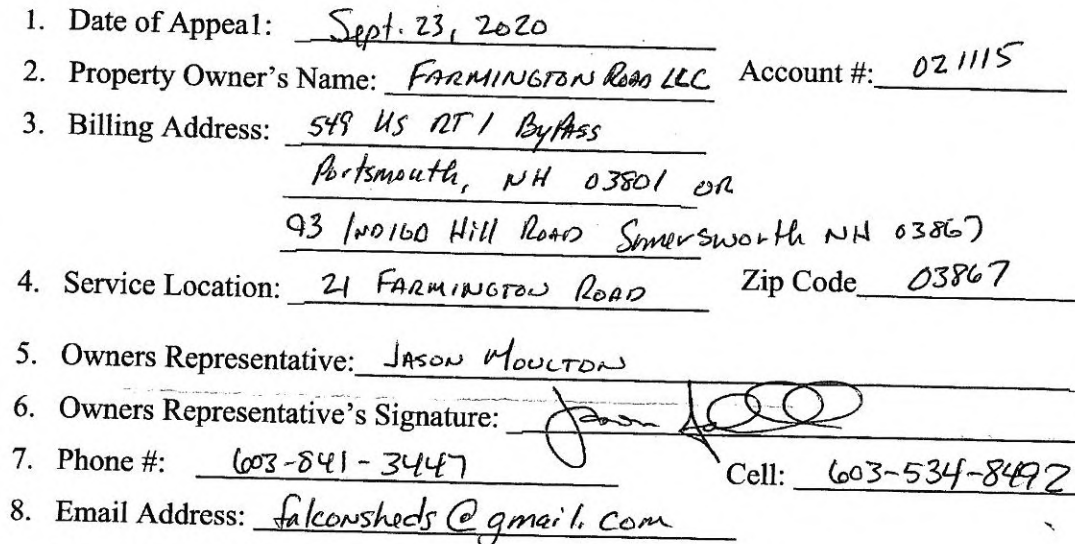 1. Date of Appeal: Sept. 23, 2020
2. Property Owner's Name: FARMINGTON ROAD LLC Account #: 021115
3. Billing Address: 549 US RT 1 ByPASS
Portsmouth, NH 03801 OR
93 INDIGO Hill ROAD Somersworth NH 03867
4. Service Location: 21 FARMINGTON ROAD Zip Code 03867
5. Owners Representative: JASON MOULTON
6. Owners Representative's Signature: Jason
7. Phone #: 603-841-3447 Cell: 603-534-8492
8. Email Address: falconsheds@gmail.com